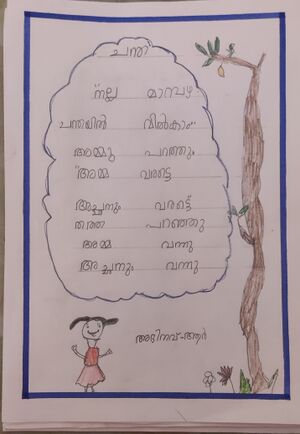 ചന്ത
"നല്ല മാമ്പഴ
ചന്തയിൽ വിൽകാം"
അമ്മു പറത്തും
"അമ്മ വരട്ടെ
അച്ഛനും വരട്ടെ
തത്ത പറഞ്ഞു
അമ്മ വന്നു
അച്ഛനും വന്നു
അഭിനവ്-ആർ